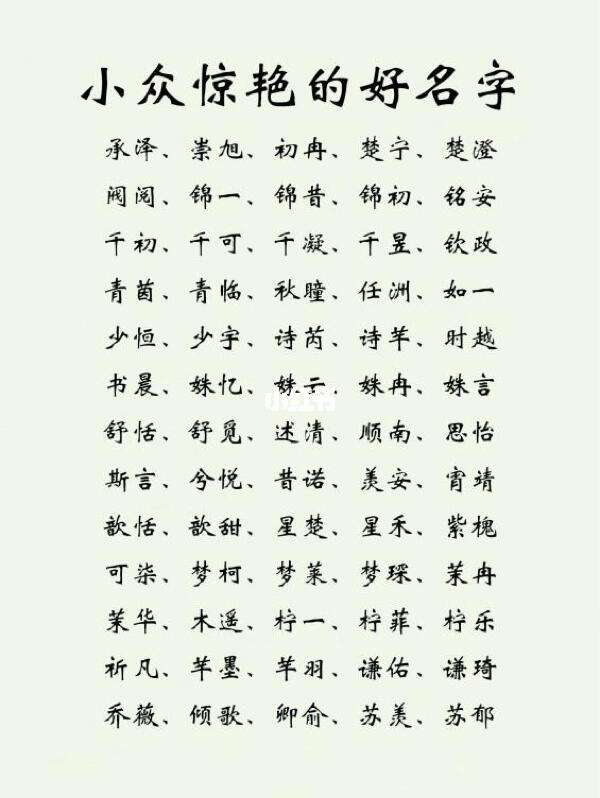 小众惊艳的好名字
承泽、崇旭、初冉、楚宁、楚澄
阀阅、锦一、锦昔、锦初、铭安
千初、千可、千凝、千昱、钦政
青茵、青临、秋瞳、任洲、如一
少恒、少宇、诗芮、诗芊、时越
书晨、姝忆、姝二、姝冉、姝言
小红书
舒恬、舒觅、述清、顺南、思怡
斯言、兮悦、昔诺、羡安、宵靖
歆恬、歆甜、星楚、星禾、紫槐
可柒、梦柯、梦莱、梦琛、茉冉
茉华、木遥、柠一、柠菲、柠乐
祈凡、芊墨、芊羽、谦佑、谦琦
乔薇、倾歌、卿俞、苏羡、苏郁